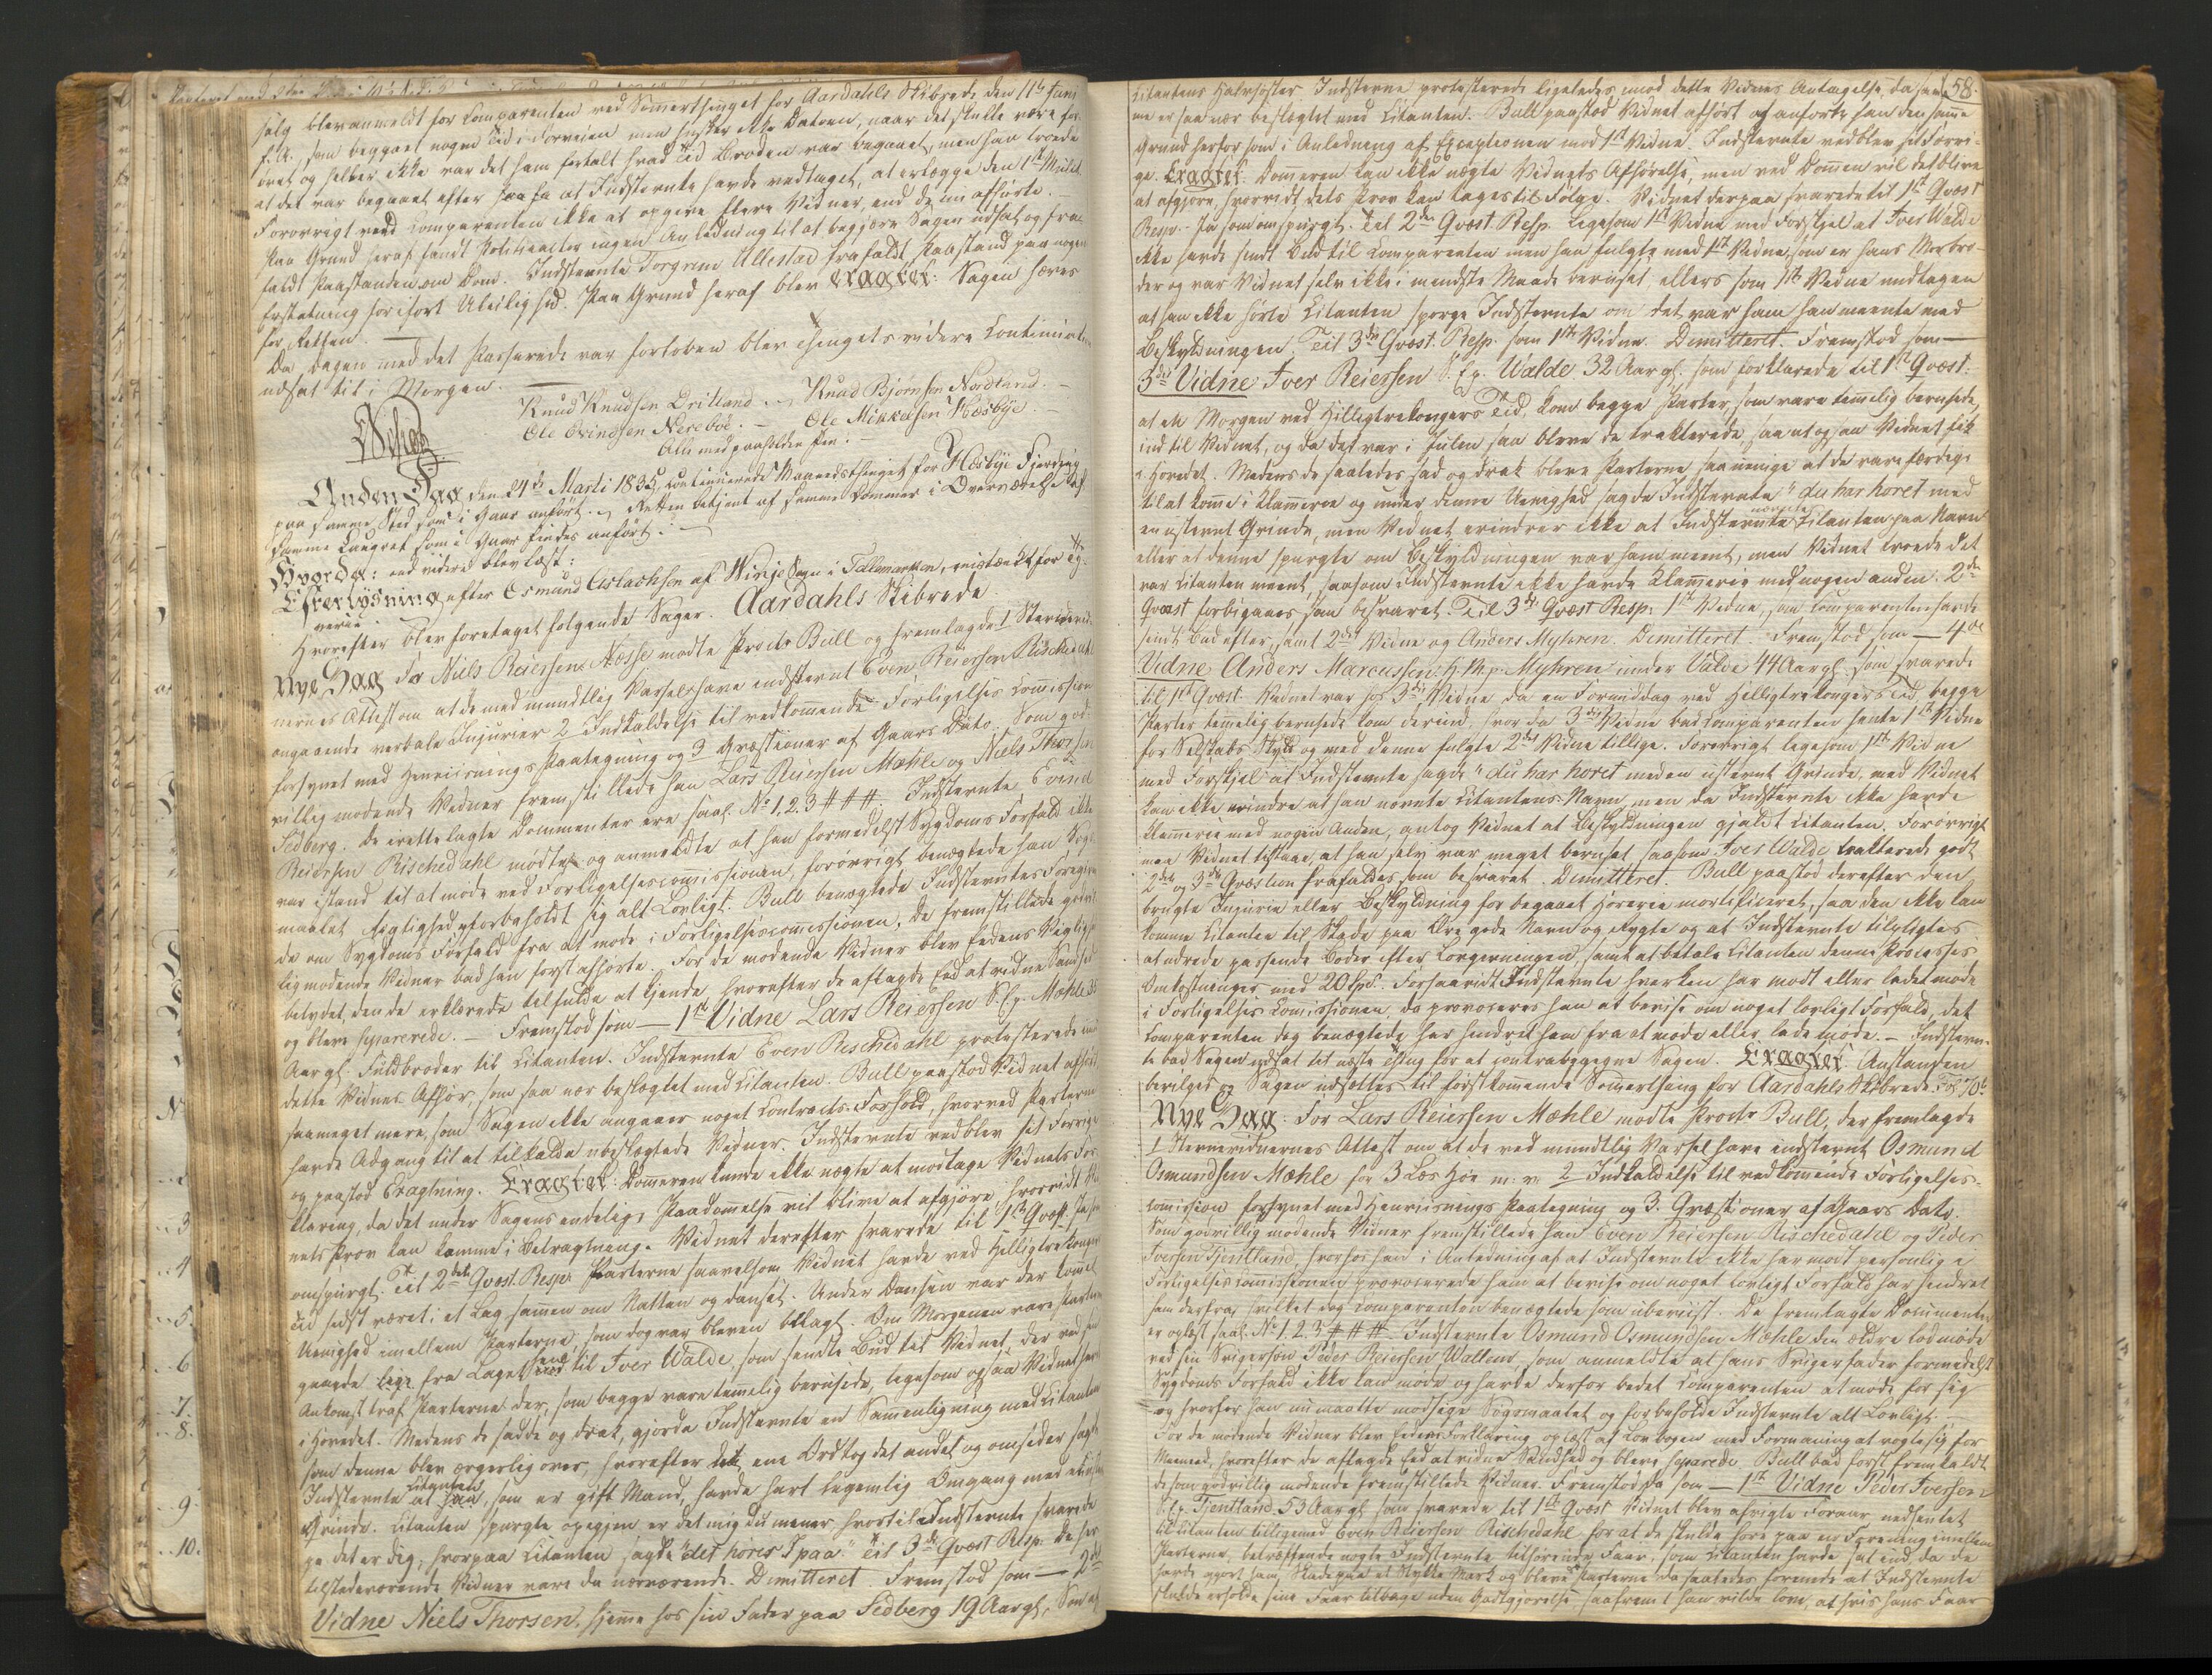 salg blev anmeldt for Comparenten ved Sommerthinget for Aardahls Skibrede den 11te Juni
f. A., som begyndt nogen Tid i Forveien men husker ikke Datoen, naar det skulle være for-
øvet og heller ikke var det ham fortalt hvad Tid Broden var begaaet, men han troede
at det var begaaet efter at Indstevnte havde vedtaget, at erlægge den 1ste Mulct.
Forøvrigt veed Comparenten ikke at opgive flere Vidner, end de nu afhørte.
Paa Grund heraf fandt Politieactor ingen Anledning til at begjære Sagen udsat og fra-
faldt Paastanden om Dom. Indstevnte Torgrim Ullestad frafaldt Paastand paa nogen
Erstatning for isört Uleilighed. Paa Grund heraf blev Eragtet: Sagen hæves
for Retten.
Da Dagen med det Passerede var forloben blev Thingets videre Continuation
udsat til i Morgen.
Knud Knudsen Dritland. Knud Bjørnsen Nordland.
Ole Evindsen Nereboe. Ole Mikkelsen Hæsbye.
Alle med paaholden Pen.
Anden Dag den 24de Marti 1835, continuerede Maanedsthinget for Hæsbye Fjerding
paa samme Sted som i Gaar anført. Retten betjent af samme Dommer i Overværelse af
samme Laugret som i Gaar findes anført:
Hvorda: end videre blev læst:
Efterlysning efter Osmund Aslachsen af Winje Sogn i Tellemarken, mistænkt for Ty-
verie.
Hvorefter blev foretaget følgende Sager. Aardahls Skibrede.
Nye Sag For Niels Reiersen Næsse mødte Procter Bull og fremlagde 1 Stevnevid-
nernes Attest om at de med mundtlig Varsel have indstevnt Even Reiersen Rischedahl
angaaende verbale Injurier 2 Indkaldelse til vedkommende Forligelses Commission
forsynet med Henviisnings Paategning og 3 Qvæstioner af Gaars Dato. Som god-
villig mødende Vidner fremstillede han Lars Reiersen Mæhle og Niels Thorsen
Sedberg. De irettelagte Documenter ere saal. No 1, 2, 3 # # #. Indstevnte Evind
Reiersen Rischedahl mødte og anmeldte at han formedelst Sygdoms Forfald ikke
var istand til at møde ved Forligelsescommissionen, forøvrigt benægtede han Søgs-
maalet Rigtighed og forbeholdt sig alt Lovligt. Bull benægtede Indstevntes Foregiven-
de om Sygdoms Forfald fra at møde i Forligelsescommissionen, de fremstillede godvil-
lig mødende Vidner bad han først afhørte. For de mødende Vidner blev Eedens Vigtighed
betydet, den de erklærede tilfulde at kjende, hvorefter de aflagde Eed at vidne Sandhed
og bleve separerede. – Fremstod som – 1ste Vidne Lars Reiersen S. Ep. Mæhle 38
Aar gl. Fuldbroder til Citanten. Indstevnte Even Rischedahl protesterede mod
dette Vidnes Afhør, som saa nær beslægtet med Citanten. Bull paastod Vidnet afhørt
saameget mere, som Sagen ikke angaaer noget Contracts-Forhold, hvorved Parterne
havde Adgang til at tilkalde ubeslægtede Vidner. Indstevnte vedblev sit Forrige
og paastod Eragtning. Eragtet: Dommeren kunde ikke nægte at modtage Vidnets For-
klaring, da det under Sagens endelige Paadømmelse vil blive at afgjøre, hvorvidt Vid-
nets Prov kan komme i Betragtning. Vidnet derefter svarede til 1ste Qvæst: Ja som
omspurgt. Til 2den Qvæst. Resp: Parterne saavelsom Vidnet havde ved Helligtrekongers
Tid sidst været i et Lag sammen om Natten og dandset. Under Dandsen var der kommet
Uenighed imellem Parterne, som dog var bleven bilagt. Om Morgenen vare Parterne
gaaede lige fra Laget hen til Iver Walde, som sendte Bud til Vidnet der ved sin
Ankomst traf Parterne der, som begge vare temmelig berusede, ligesom ogsaa Vidnet havde
i Hovedet. Medens de sadde og drak, gjorde Indstevnte en Sammenligning med Citanten
som denne blev ærgerlig over, hvorefter det ene Ord tog det andet og omsider sagde
Indstevnte at Citanten, som er gift Mand, havde havt legemlig Omgang med en
Qvinde. Citanten spurgte og igjen er det mig du mener hvortil Indstevnte svarede
ja det er dig; hvorpaa Citanten sagde "det hører I paa." Til 3de Qvæst. Resp. De her
tilstedeværende Vidner vare da nærværende. Dimitteret. Fremstod som – 2det
Vidne Niels Thorsen, hjemme hos sin Fader paa Sedberg 19 Aar gl, Søn af
58.
Citantens Halvsøster. Indstevnte protesterede ligeledes mod dette Vidnes Antagelse, da sam-
me er saa nær beslægtet med Citanten. Bull paastod Vidnet afhørt og anførte han den samme
Grund herfor som i Anledning af Exceptionen mod 1ste Vidne. Indstevnte vedblev sit Forri-
ge. Eragtet: Dommeren kan ikke nægte Vidnets Afhørelse, men ved Dommen vil det blive
at afgjøre, hvorvidt dets Prov kan tages til Følge. Vidnet derpaa svarede til 1ste Qvæst
Resp: Ja som omspurgt. Til 2den Qvæst. Resp. ligesom 1ste Vidne med Forskjel at Iver Walde
ikke havde sendt Bud til Comparenten men han fulgte med 1ste Vidne, som er hans Morbro-
der og var Vidnet selv ikke i mindste Maade beruset, ellers som 1ste Vidne undtagen
at han ikke hørte Citanten spørge Indstevnte om det var ham han meente med
Beskyldningen. Til 3die Qvæst. Resp. som 1ste Vidne. Dimitteret. Fremstod som –
3die Vidne Iver Reiersen S. Ep. Walde 32 Aar gl. som forklarede til 1ste Qvæst.
at en Morgen ved Hilligtrekongers Tid, kom begge Parter, som vare temmelig berusede,
ind til Vidnet, og da det var i Julen saa bleve de trakterede, saa at ogsaa Vidnet fik
i Hovedet. Medens de saaledes sad og drak bleve Parterne saa uenige at de vare færdige
til at komme i Klammerie og under denne Uenighed sagde Indstevnte "du har horet med
en ustevnt Qvinde, men Vidnet erindrer ikke at Indstevnte nævnte Citanten paa Navn
eller at denne spurgte om Beskyldningen var ham meent, men Vidnet troede det
var Citanten meent, saasom Indstevnte ikke havde Klammerie med nogen anden. 2den
Qvæst forbigaaes som besvaret. Til 3die Qvæst Resp: 1ste Vidne, som Comparenten havde
sendt Bud efter, samt 2det Vidne og Anders Myhren. Dimitteret. Fremstod som – 4de
Vidne Anders Marcussen H. M. p. Myhren under Valde 44 Aar gl. som svarede
til 1ste Qvæst: Vidnet var hos 3die Vidne da en Formiddag ved Helligtrekongers Tid begge
Parter temmelig berusede kom derind, hvor da 3die Vidne bad Comparenten hente 1ste Vidne
for Selskabs Skyld og med denne fulgte 2det Vidne tillige. Forøvrigt ligesom 1ste Vidne
med Forskjel at Indstevnte sagde "du har horet med en ustevnt Qvinde, med Vidnet
kan ikke erindre at han nævnte Citantens Navn, men da Indstevnte ikke havde
Klammerie med nogen Anden, antog Vidnet at Beskyldningen gjaldt Citanten. Forøvrigt
maa Vidnet tilstaae, at han selv var meget beruset, saasom Iver Walde trakterede godt
2den og 3die Qvæstion frafaldes som besvaret. Dimitteret. Bull paastod derefter den
brugte Injurie eller Beskyldning for begaaet Horerie mortificeret, saa den ikke kan
komme Citanten til Skade paa Ære gode Navn og Rygte og at Indstevnte tilpligtes
at udrede passende Bøder efter Lovgivningen, samt at betale Citanten denne Processes
Omkostninger med 20 Spd. Forsaavidt Indstevnte hverken har mødt eller ladet møde
i Forligelses Commissionen, da provoceres han at bevise om noget lovligt Forfald, det
Comparenten dog benægtede har hindret ham fra at møde eller lade møde. – Indstevn-
te bad Sagen udsat til næste Thing for at contrabevise Sagen. Eragtet: Anstanden
bevilges og Sagen udsættes til førstkommende Sommerthing for Aardahls Skibrede. Fol. 70.
Nye Sag: For Lars Reiersen Mæhle mødte Procter Bull, der fremlagde
1 Stevnevidnernes Attest om at de ved mundtlig Varsel have indstevnt Osmund
Osmundsen Mæhle for 3 Læs Høe m: v: 2 Indkaldelse til vedkommende Forligelses-
commission forsynet med Henviisnings Paategning og 3. Qvæstioner af Gaars Dato.
Som godvillig mødende Vidner fremstillede han Even Reiersen Rischedahl og Peder
Iversen Tjentland, hvorhos han i Anledning af at Indstevnte ikke har mødt personlig i
Forligelsescommissionen provocerede ham at bevise om noget lovligt Forfald har hindret
ham derfra, hvilket dog Comparenten benægtede som ubeviist. De fremlagte Documenter
er oplæst saal. No 1. 2. 3 # # #. Indstevnte Osmund Osmundsen Mæhle den ældre lod møde
ved sin Svigersøn Peder Reiersen Wallem, som anmeldte at hans Svigerfader formedelst
Sygdoms Forfald ikke kan møde og havde derfor bedet Comparenten at møde for sig
og hvorfor han nu maatte modsige Søgsmaalet og forbeholde Indstevnte alt Lovligt.
For de mødende Vidner blev Eedens Forklaring oplæst af Lovbogen med Formaning at vogte sig for
Meeneed, hvorefter de aflagde Eed at vidne Sandhed og bleve separede. Bull bad først fremkaldt
de som godvillig mødende fremstillede Vidner. Fremstod da som – 1ste Vidne Peder Iversen
S. p. Tjentland 53 Aar gl. som svarede til 1ste Qvæst Vidnet blev afvigte Foraar nedhentet
til Citanten tilligemed Even Reiersen Rischedahl for at de skulde høre paa en Forening imellem
Parterne, betræffende nogle Indstevnte tilhørende Faar, som Citanten havde sat ind, da de
havde gjort ham Skade paa et Stykke Mark og bleve Parterne da saaledes forenede at Indstevnte
skulde erholde sine Faar tilbage uden Godtgjørelse saafremt han vilde love, at hvis hans Faar